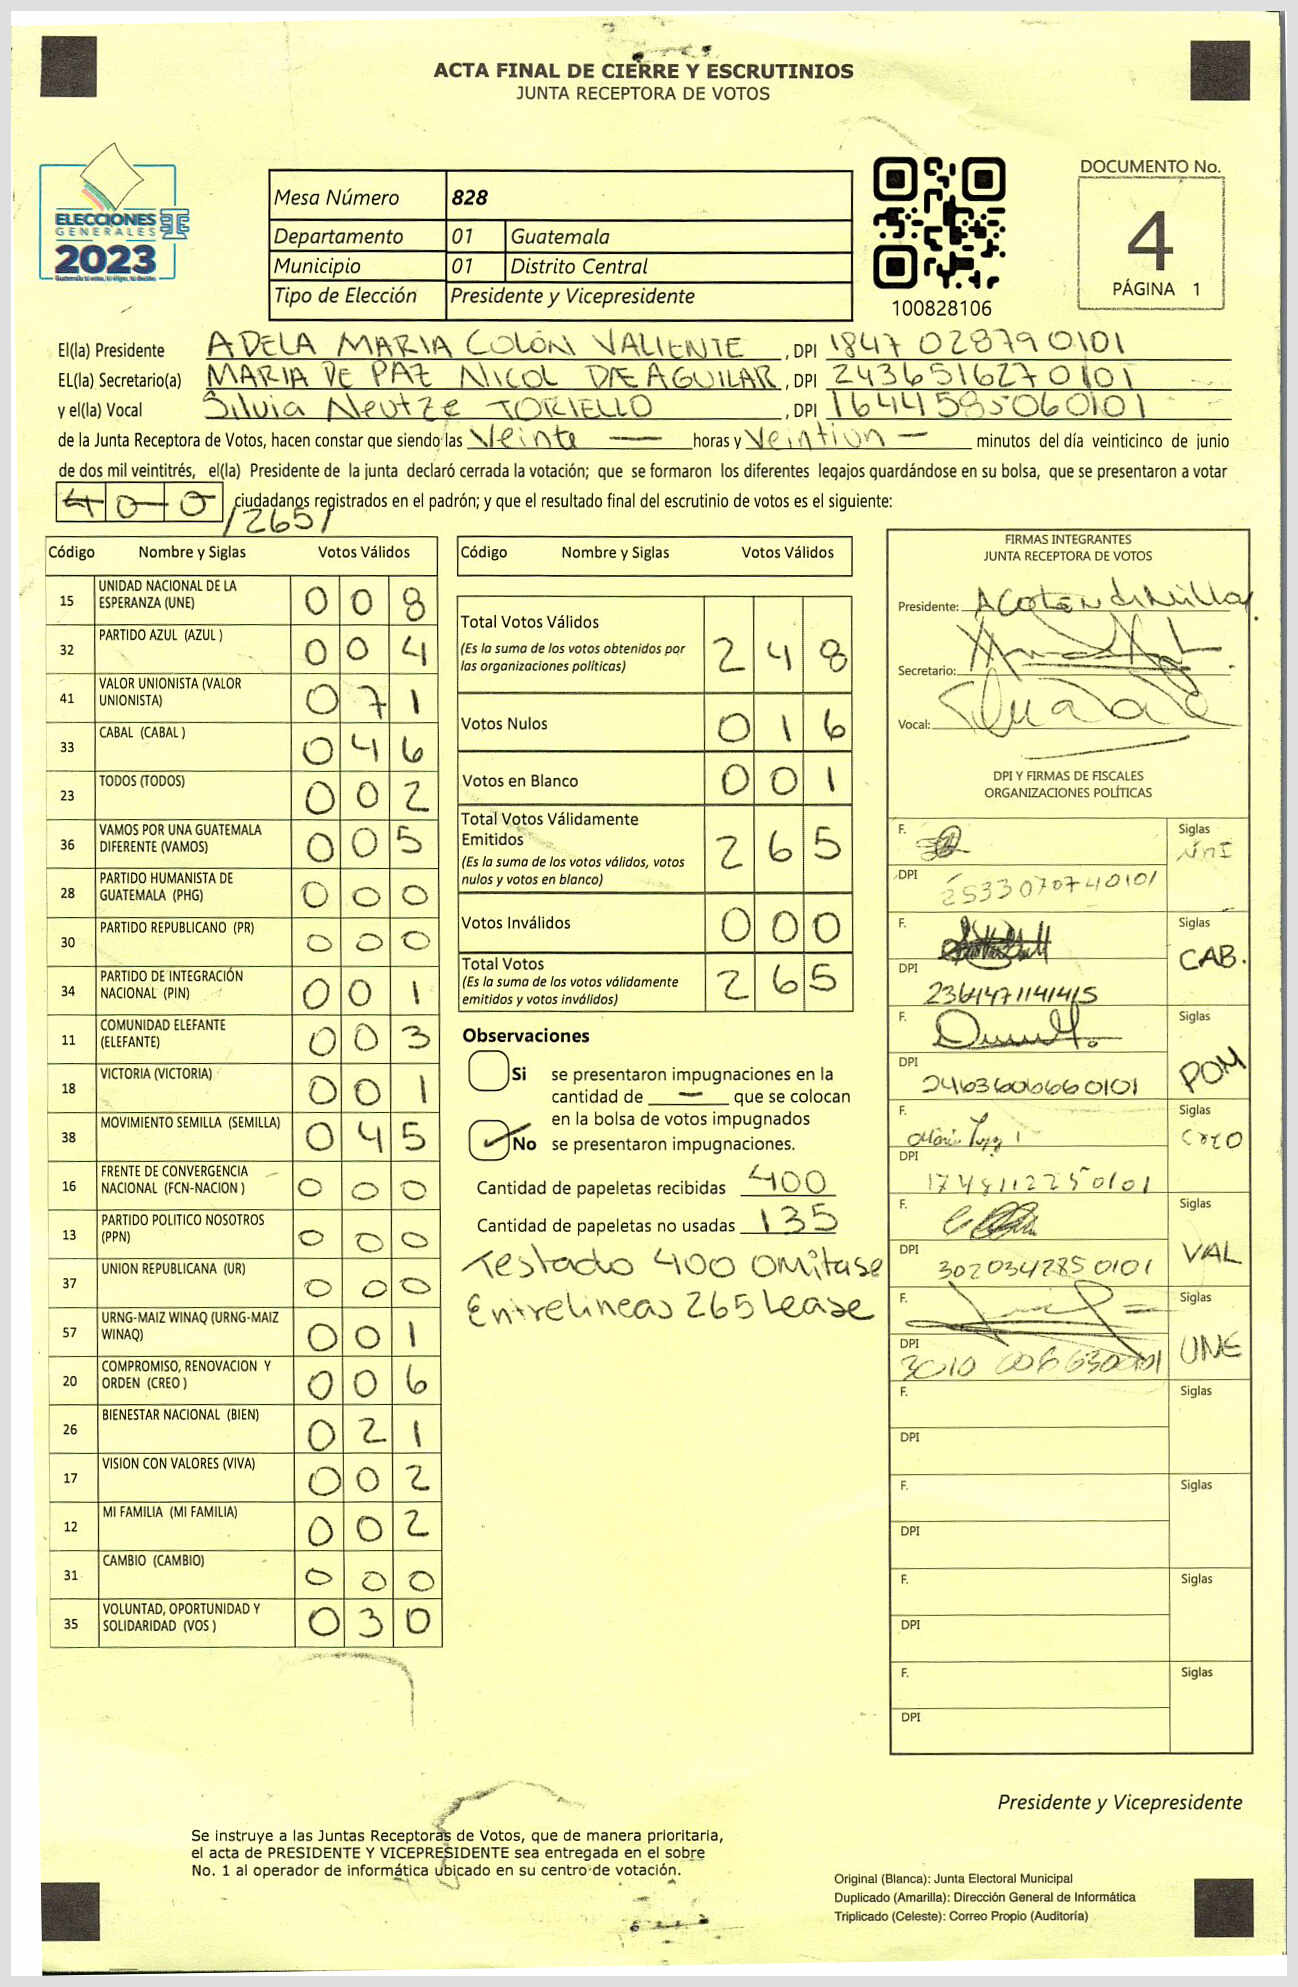 ACTA FINAL DE CIERRE Y ESCRUTINIOS
JUNTA RECEPTORA DE VOTOS
ELECCIONES
GENERALES
2023
Mesa Número 828
Departamento 01 Guatemala
Municipio 01 Distrito Central
Tipo de Elección Presidente y Vicepresidente
100828106
DOCUMENTO No.
4
PÁGINA 1
El(la) Presidente ADELA MARIA COLÓN VALIENTE, DPI 1847 028790101
EL(la) Secretario(a) MARIA DE PAZ NICOL DE AGUILAR, DPI 2436516270101
y el(la) Vocal Silvia Neutze TORIELLO, DPI 1644585060101
de la Junta Receptora de Votos, hacen constar que siendo las Veinte — horas y Veintiun — minutos del día veinticinco de junio
de dos mil veintitrés, el(la) Presidente de la junta declaró cerrada la votación; que se formaron los diferentes legajos guardándose en su bolsa, que se presentaron a votar
400 ciudadanos registrados en el padrón; y que el resultado final del escrutinio de votos es el siguiente:
/265/
Código Nombre y Siglas Votos Válidos
15 UNIDAD NACIONAL DE LA ESPERANZA (UNE) 0 0 8
32 PARTIDO AZUL (AZUL ) 0 0 4
41 VALOR UNIONISTA (VALOR UNIONISTA) 0 7 1
33 CABAL (CABAL ) 0 4 6
23 TODOS (TODOS) 0 0 2
36 VAMOS POR UNA GUATEMALA DIFERENTE (VAMOS) 0 0 5
28 PARTIDO HUMANISTA DE GUATEMALA (PHG) 0 0 0
30 PARTIDO REPUBLICANO (PR) 0 0 0
34 PARTIDO DE INTEGRACIÓN NACIONAL (PIN) 0 0 1
11 COMUNIDAD ELEFANTE (ELEFANTE) 0 0 3
18 VICTORIA (VICTORIA) 0 0 1
38 MOVIMIENTO SEMILLA (SEMILLA) 0 4 5
16 FRENTE DE CONVERGENCIA NACIONAL (FCN-NACION ) 0 0 0
13 PARTIDO POLITICO NOSOTROS (PPN) 0 0 0
37 UNION REPUBLICANA (UR) 0 0 0
57 URNG-MAIZ WINAQ (URNG-MAIZ WINAQ) 0 0 1
20 COMPROMISO, RENOVACION Y ORDEN (CREO ) 0 0 6
26 BIENESTAR NACIONAL (BIEN) 0 2 1
17 VISION CON VALORES (VIVA) 0 0 2
12 MI FAMILIA (MI FAMILIA) 0 0 2
31 CAMBIO (CAMBIO) 0 0 0
35 VOLUNTAD, OPORTUNIDAD Y SOLIDARIDAD (VOS ) 0 3 0
Código Nombre y Siglas Votos Válidos
Total Votos Válidos 2 4 8
(Es la suma de los votos obtenidos por
las organizaciones políticas)
Votos Nulos 0 1 6
Votos en Blanco 0 0 1
Total Votos Válidamente
Emitidos 2 6 5
(Es la suma de los votos válidos, votos
nulos y votos en blanco)
Votos Inválidos 0 0 0
Total Votos 2 6 5
(Es la suma de los votos válidamente
emitidos y votos inválidos)
Observaciones
Si se presentaron impugnaciones en la
cantidad de — que se colocan
en la bolsa de votos impugnados
No se presentaron impugnaciones.
Cantidad de papeletas recibidas 400
Cantidad de papeletas no usadas 135
Testado 400 omitase
Entrelineas 265 Lease
FIRMAS INTEGRANTES
JUNTA RECEPTORA DE VOTOS
Presidente:
Secretario:
Vocal:
DPI Y FIRMAS DE FISCALES
ORGANIZACIONES POLÍTICAS
F. Siglas
DPI 2533070740101
F. Siglas CAB.
DPI 2364471141415
F. Siglas POM
DPI
F. Siglas Creo
DPI 1748112250101
F. Siglas VAL
DPI 3020342850101
F. Siglas UNE
DPI
F. Siglas
DPI
F. Siglas
DPI
F. Siglas
DPI
F. Siglas
DPI
Presidente y Vicepresidente
Se instruye a las Juntas Receptoras de Votos, que de manera prioritaria,
el acta de PRESIDENTE Y VICEPRESIDENTE sea entregada en el sobre
No. 1 al operador de informática ubicado en su centro de votación.
Original (Blanca): Junta Electoral Municipal
Duplicado (Amarilla): Dirección General de Informática
Triplicado (Celeste): Correo Propio (Auditoría)